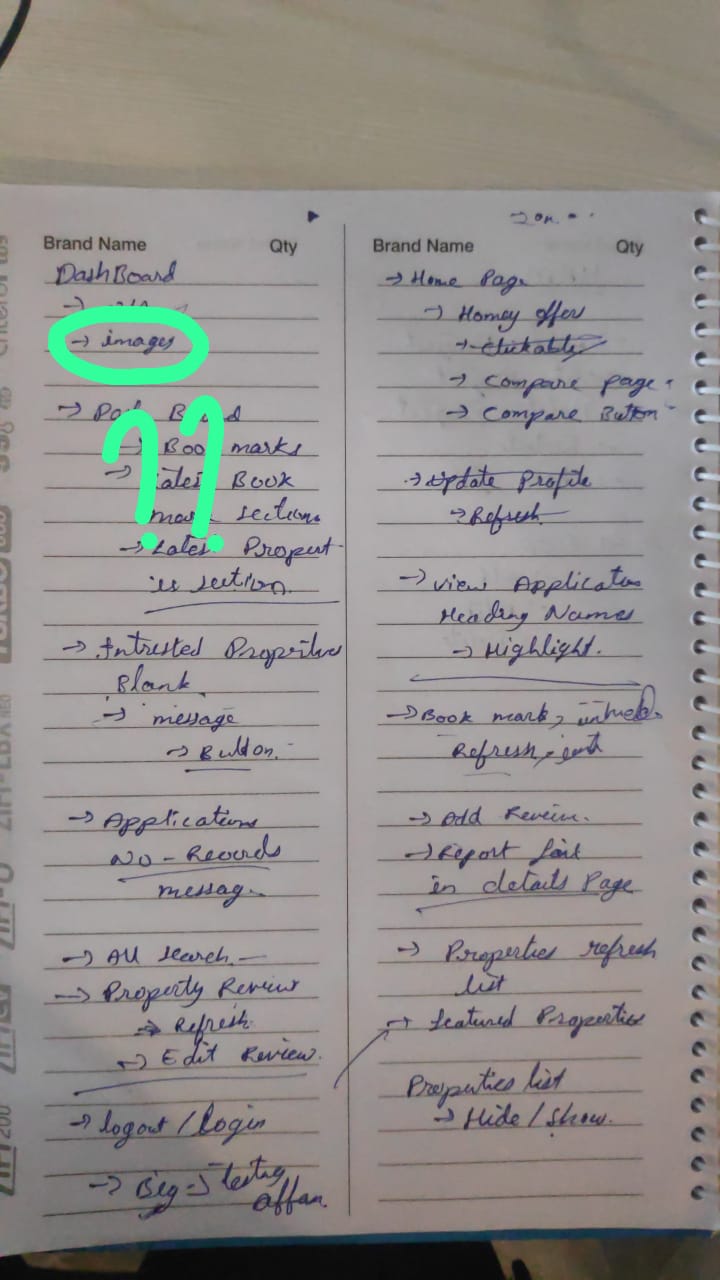 Brand Name Qty
DashBoard
→ images
→ Book marks
→ Book
mark section
→ Latest Propert
ies section.
→ Intrested Properties
Blank
→ message
→ Button.
→ Applications
No - Records
message
→ All search. —
→ Property Review
→ Refresh
→ Edit Review.
→ logout / Login
→ testing
??
Brand Name Qty
→ Home Page
→ Homey offer
→ Clickable
→ Compare page
→ Compare Button
→ Update Profile
→ Refresh
→ View Application
Heading Names
→ Highlight.
→ Book mark,
Refresh,
→ Add Review.
→ Report
in details Page
→ Properties refresh
list
→ featured Properties
Properties list
→ Hide / Show.
200